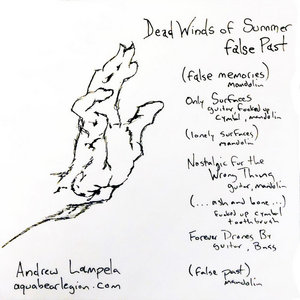 Dead Winds of Summer
False Past
(false memories)
mandolin
Only Surfaces
guitar, fucked up
cymbal, mandolin
(lonely surfaces)
mandolin
Nostalgic for the
Wrong Thing
guitar, mandolin
(...ash and bone...)
fucked up cymbal
toothbrush
Forever Drones By
guitar, Bass
(false past)
mandolin
Andrew Lampela
aquabearlegion.com